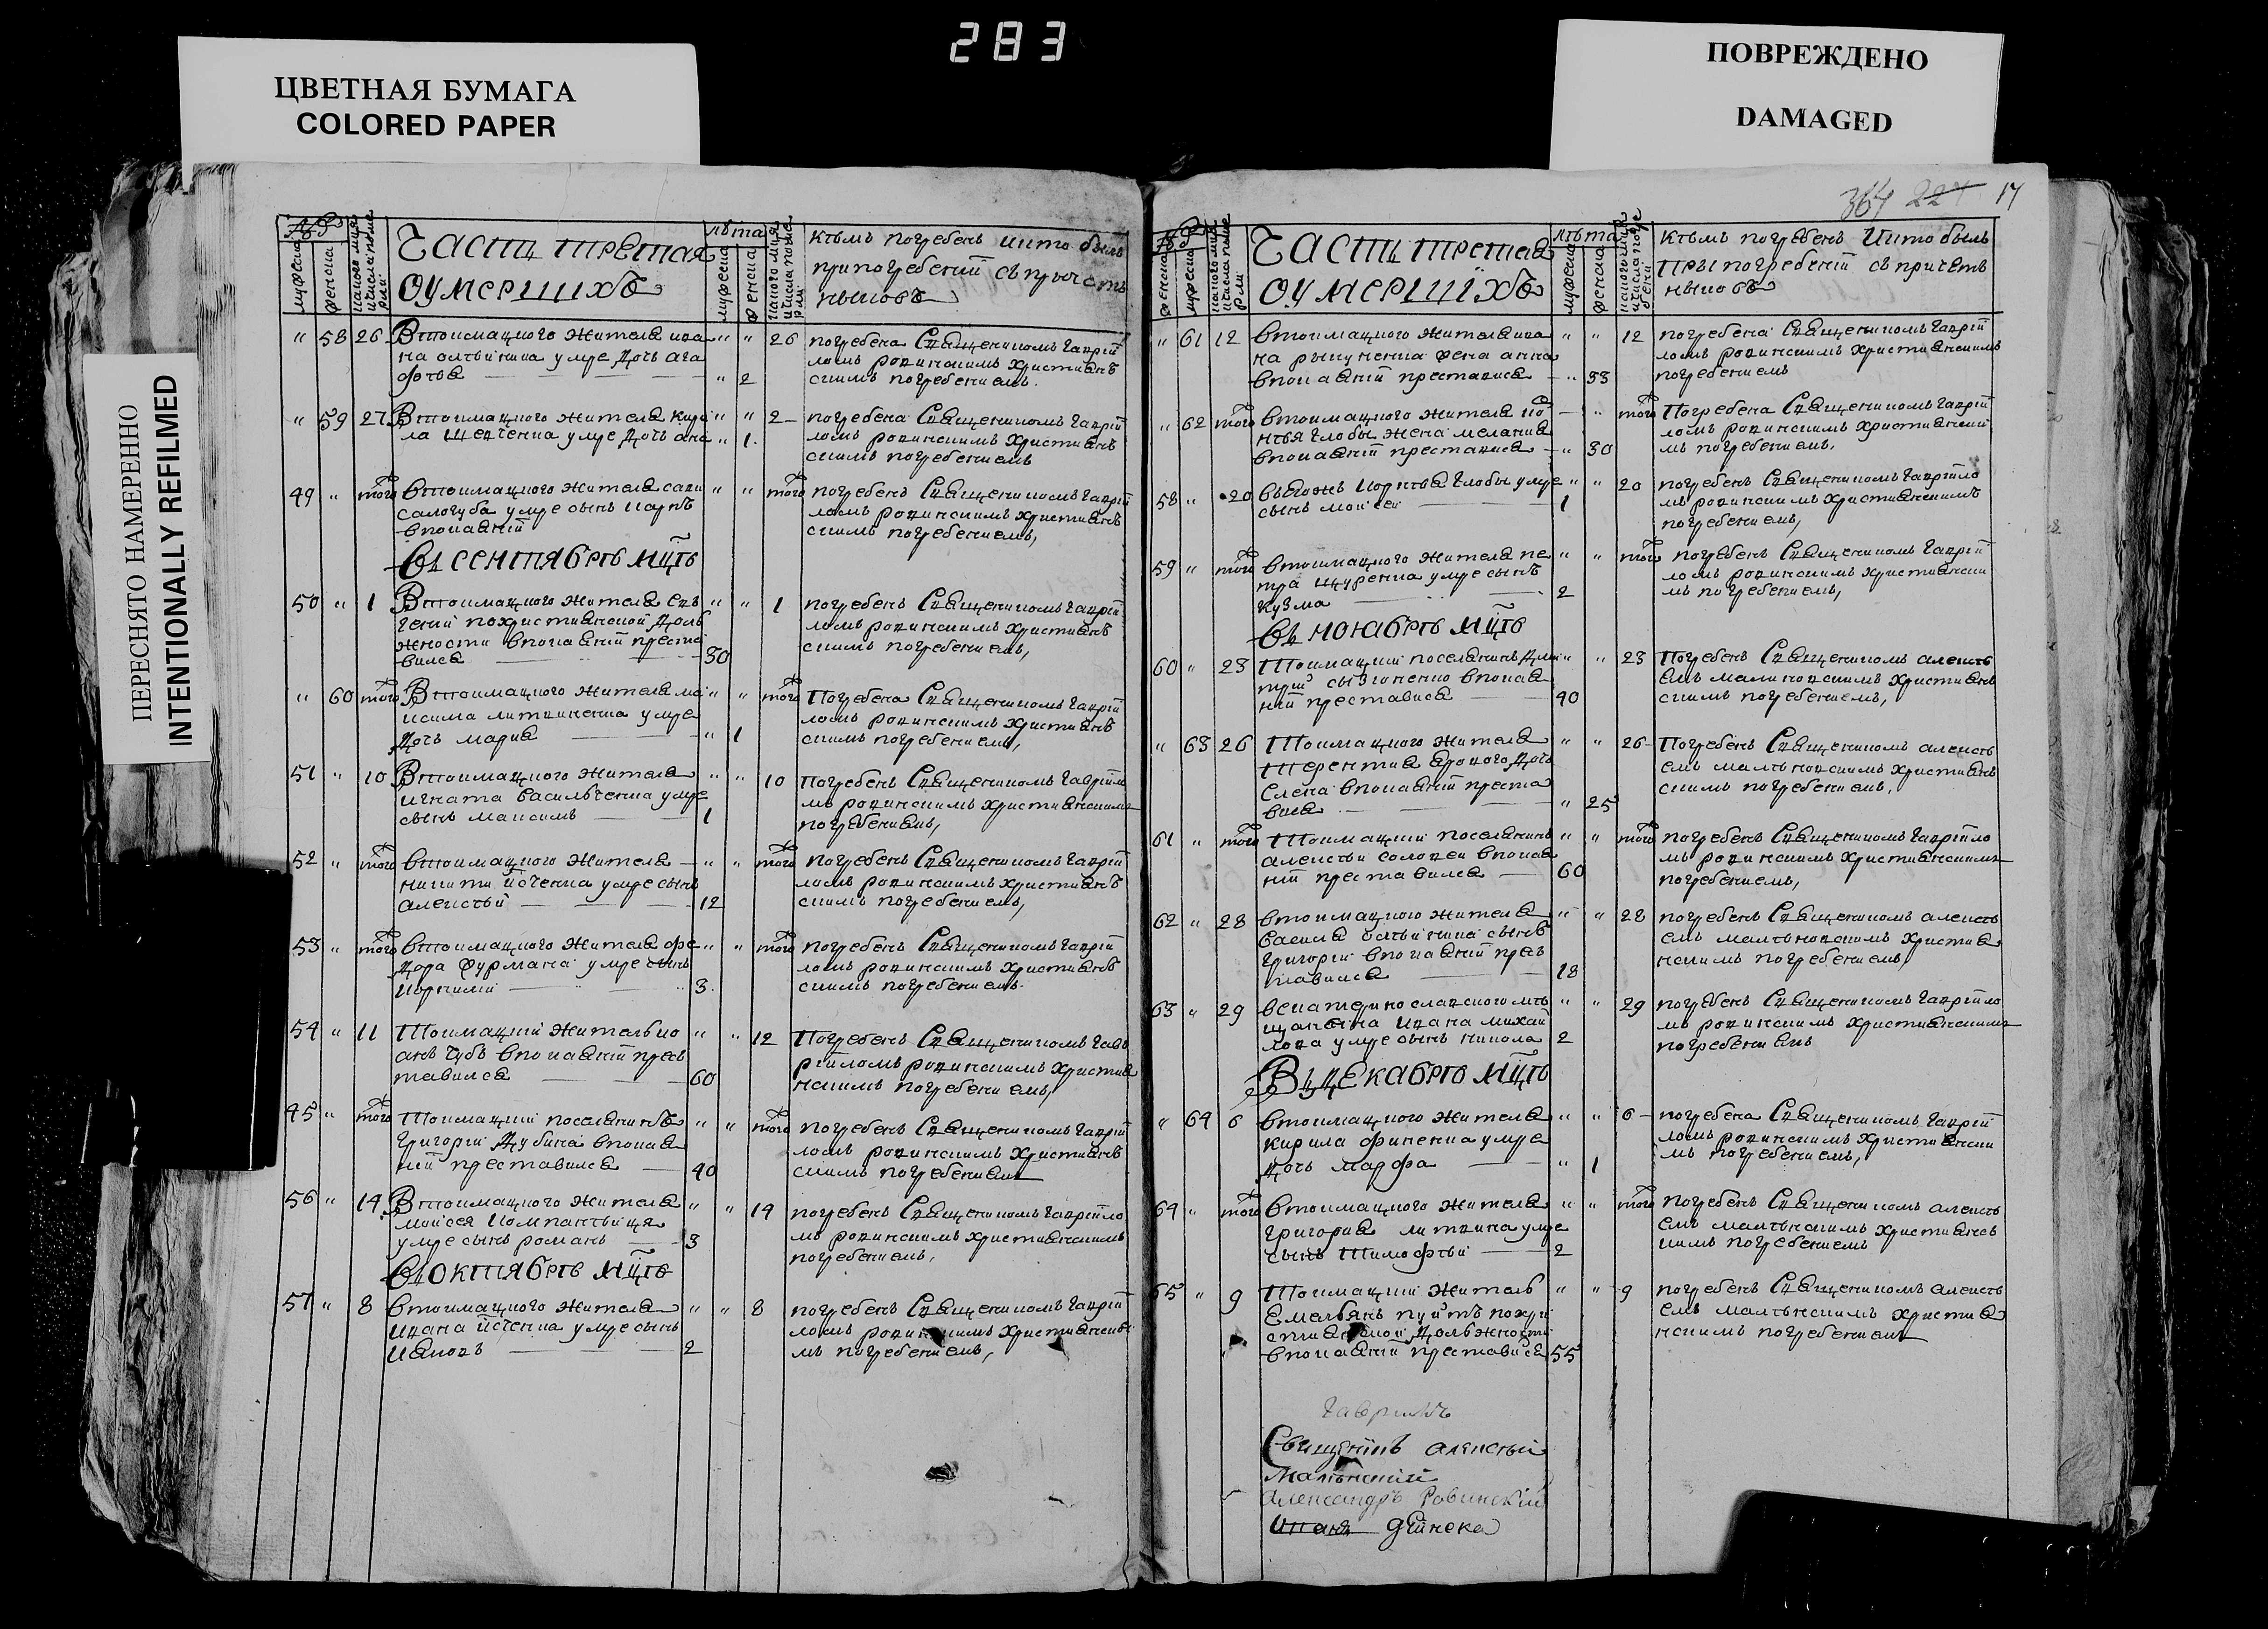 283
ЦВЕТНАЯ БУМАГА
COLORED PAPER
ПОВРЕЖДЕНО
DAMAGED
ПЕРЕСНЯТО НАМЕРЕННО
INTENTIONALLY REFILMED
364 224 17
Часть третая
оумершихъ
лѣта
Кѣмъ погребенъ и кто былъ
при погребеніи съ причет
никовъ
58 26 Втокмацкого жителя ива
умре дочь ага
фѣя 2
26 погребена Священикомъ Гаврїи
ломъ ровинскимъ христиан
скимъ погребениемъ
59 27 Втокмацкого жителя кири
ла шевченка умре дочь ана 1
погребена Священикомъ Гаврїи
ломъ ровинскимъ христиан
скимъ погребениемъ
49 того втокмацкого жителя сави
салогуба умре сынъ карпъ
впокаянїи
того погребенъ Священикомъ Гаврїи
ломъ ровинскимъ христиан
скимъ погребениемъ,
въ сентябрѣ мцѣ
50 1 Втокмацкого жителя
похристианской дол
жности впокаянїи преста
вился 30
1 погребенъ Священикомъ Гаврїи
ломъ ровинскимъ христиан
скимъ погребениемъ,
60 того Втокмацкого жителя ма
ксима литвиненка умре
дочь мария 1
того Погребена Священикомъ Гаврїи
ломъ ровинскимъ христиан
скимъ погребениемъ,
51 10 Втокмацкого жителя
игната васильченка умре
сынъ максимъ 1
10 Погребенъ Священикомъ Гаврїило
мъ ровинскимъ християнскимъ
погребениемъ,
52 того втокмацкого жителя
никити ӥсченка умре сынъ
алексѣй 12
того погребенъ Священикомъ Гаврїи
ломъ ровинскимъ христиан
скимъ погребениемъ,
53 того втокмацкого жителя фе
дора фурмана умре сынъ
корнилїй 3
того погребенъ Священикомъ Гаврїи
ломъ ровинскимъ христиан
скимъ погребениемъ
54 11 Токмацкий житель ио
анъ чубъ впокаянїи прес
тавился 60
12 Погребенъ Священикомъ Гав
рїиломъ ровинскимъ христия
нскимъ погребениемъ,
45 того Токмацкий поселянинъ
григорїй дубина впокая
нїи преставился 40
того погребенъ Священикомъ Гаврїи
ломъ ровинскимъ христиан
скимъ погребениемъ
56 14 Втокмацкого жителя
моисея компанѣйця
умре сынъ романъ 3
14 погребенъ Священикомъ Гаврїило
мъ ровинскимъ христианскимъ
погребениемъ,
въ октябрѣ мцѣ
57 8 втокмацкого жителя
ивана ӥсченка умре сынъ
иаковъ 2
8 погребенъ Священикомъ Гаврїи
ломъ ровинскимъ христиански
мъ погребениемъ,
Часть третая
оумершїхъ
лѣта
Кѣмъ погребенъ и кто былъ
при погребеніи съ причет
никовъ
61 12 втокмацкого жителя ива
на жена анна
впокаянїи преставися 33
12 погребена Священикомъ Гаврїи
ломъ ровинскимъ християнскимъ
погребениемъ
62 того втокмацкого жителя
глобы жена мелания
впокаянїи преставися 30
того Погребена Священикомъ Гаврїи
ломъ ровинскимъ християнски
мъ погребениемъ.
58 20 глобы умре
сынъ моисей 1
20 погребенъ Священикомъ Гаврїило
мъ ровинскимъ християнскимъ
погребениемъ,
59 того втокмацкого жителя пе
тра щуренка умре сынъ
кузма 2
того погребенъ Священикомъ Гаврїи
ломъ ровинскимъ християнски
мъ погребениемъ,
въ ноябрѣ мцѣ
60 23 Токмацкий поселянинъ дми
трїй впокая
нїи преставися 40
23 Погребенъ Священикомъ алексѣ
емъ христиан
скимъ погребениемъ,
63 26 Токмацкого жителя
терентия дочь
елена впокаянїи преста
вися 25
26 Погребенъ Священикомъ алексѣ
емъ христиан
скимъ погребениемъ,
61 того Токмацкий поселянинъ
алексѣй соловей впокая
нїи преставился 60
того погребенъ Священикомъ Гаврїило
мъ ровинскимъ християнскимъ
погребениемъ,
62 28 втокмацкого жителя
василя сынъ
григорїй впокаянїи прес
тавился 18
28 погребенъ Священикомъ алексѣ
емъ христия
нскимъ погребениемъ,
63 29 векатеринославского мѣ
щанина ивана михай
лова умре сынъ никола 2
29 погребенъ Священикомъ Гаврїило
мъ ровинскимъ християнскимъ
погребениемъ
Въ декабрѣ мцѣ
64 6 втокмацкого жителя
кирила финенка умре
дочь марфа 1
6 погребена Священикомъ Гаврїи
ломъ ровинскимъ християнски
мъ погребениемъ,
64 того втокмацкого жителя
григория литвина умре
сынъ тимофѣй 2
того погребенъ Священикомъ алексѣ
емъ христианс
кимъ погребениемъ
65 9 Токмацкий житель
емельянъ похри
стианской должности
впокаянїи преставися 55
9 погребенъ Священикомъ алексѣ
емъ христия
нскимъ погребениемъ
Гавриилъ
Священикъ алексѣй
Александръ Ровинскій
дейнека